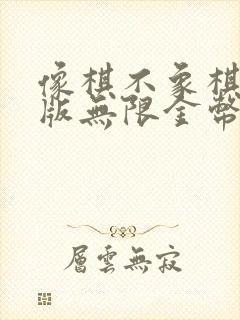 像棋不象棋
版無限金幣
層雲無寂